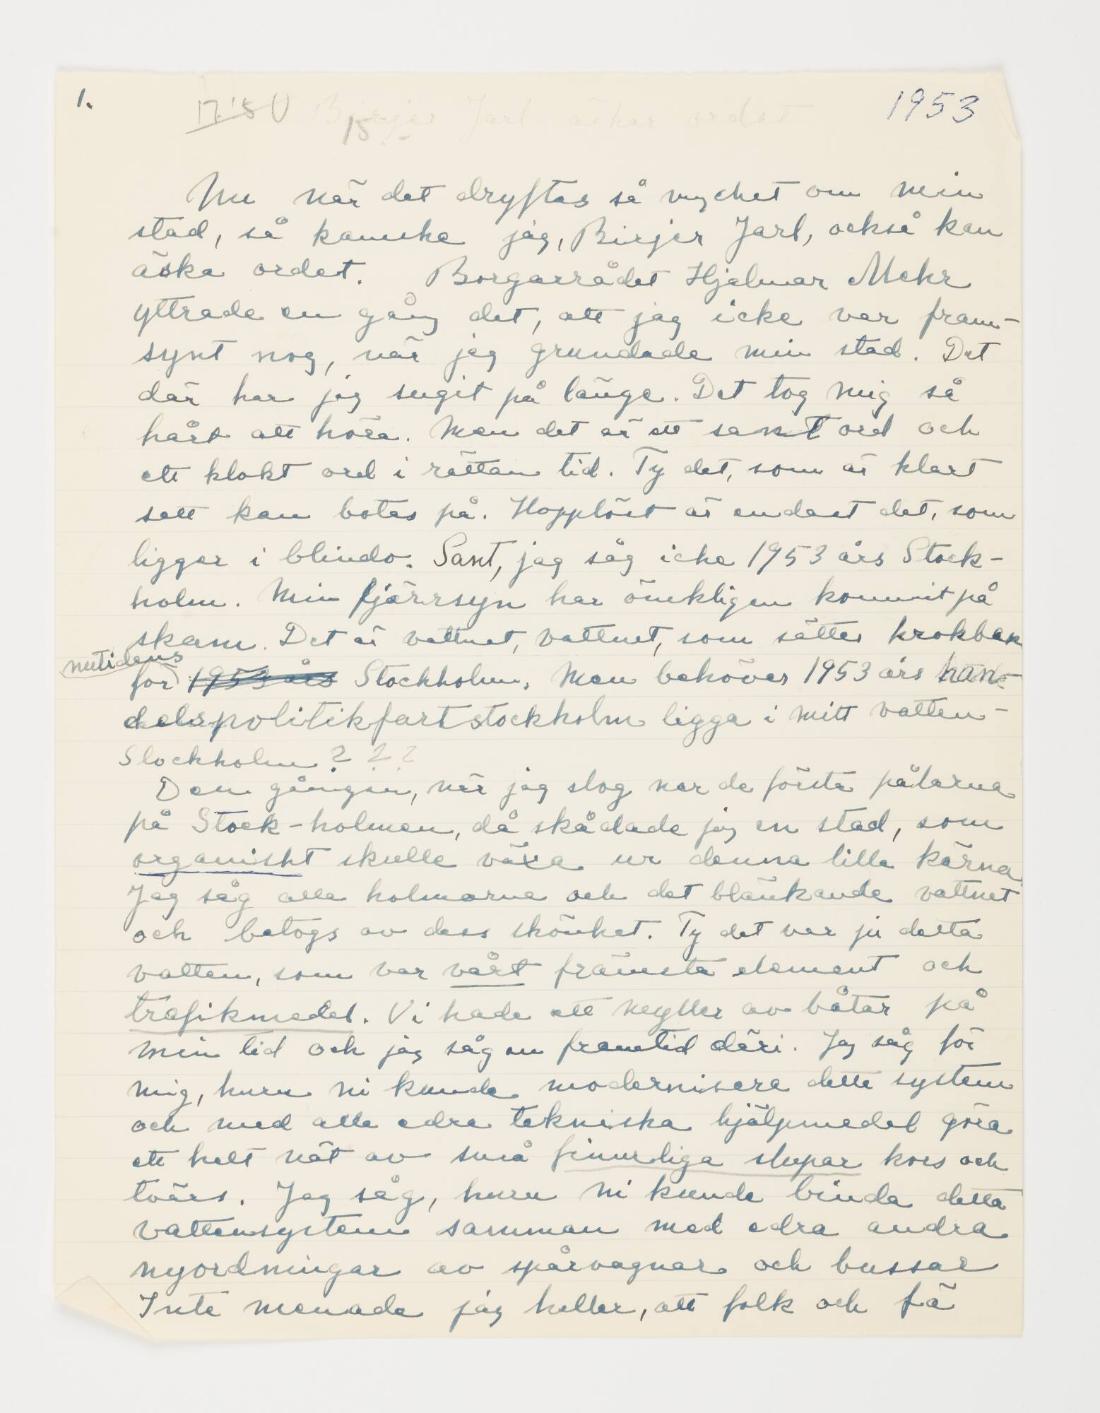 1.
1953
Birjer Jarl äskar ordet
Nu när det dryftas så mycket om min
stad, så kanske jag, Birjer Jarl, också kan
äska ordet. Borgarrådet Hjalmar Mehr
yttrade en gång det, att jag icke var fram-
synt nog, när jag grundade min stad. Det
där har jag sugit på länge. Det tog mig så
hårt att höra. Men det är ett sant ord och
ett klokt ord i rättan tid. Ty det, som är klart
sett kan botas på. Hopplöst är endast det, som
ligger i blindo. Sant, jag såg icke 1953 års Stock-
holm. Min fjärrsyn har ömkligen kommit på
skam. Det är vattnet, vattnet, som sätter krokben
nutidens
för 1953 års Stockholm. Men behöver 1953 års han-
delspolitikfartstockholm ligga i mitt vatten-
Stockholm ? ? ?
Den gången, när jag slog ner de första pålarna
på Stock-holmen, då skådade jag en stad, som
organiskt skulle växa ur denna lilla kärna.
Jag såg alla holmarna och det blänkande vattnet
och betogs av dess skönhet. Ty det var ju detta
vatten, som var vårt främsta element och
trafikmedel. Vi hade ett myller av båtar på
min tid och jag såg en framtid däri. Jag såg för
mig, huru ni kunde modernisera detta system
och med alla edra tekniska hjälpmedel göra
ett helt nät av små finurliga slupar kors och
tvärs. Jag såg, huru ni kunde binda detta
vattensystem samman med edra andra
nyordningar av spårvagnar och bussar
Inte menade jag heller, att folk och fä